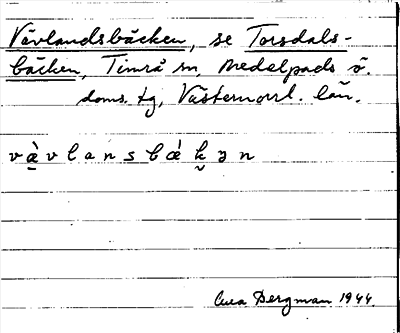 Vävlandsbäcken, se Torsdals-
bäcken, Timrå sn, Medelpads ö.
doms. tg, Västernorrl. län.
v à̱ v l a n s b ǽ k̬ ə n
Bergman 1944.